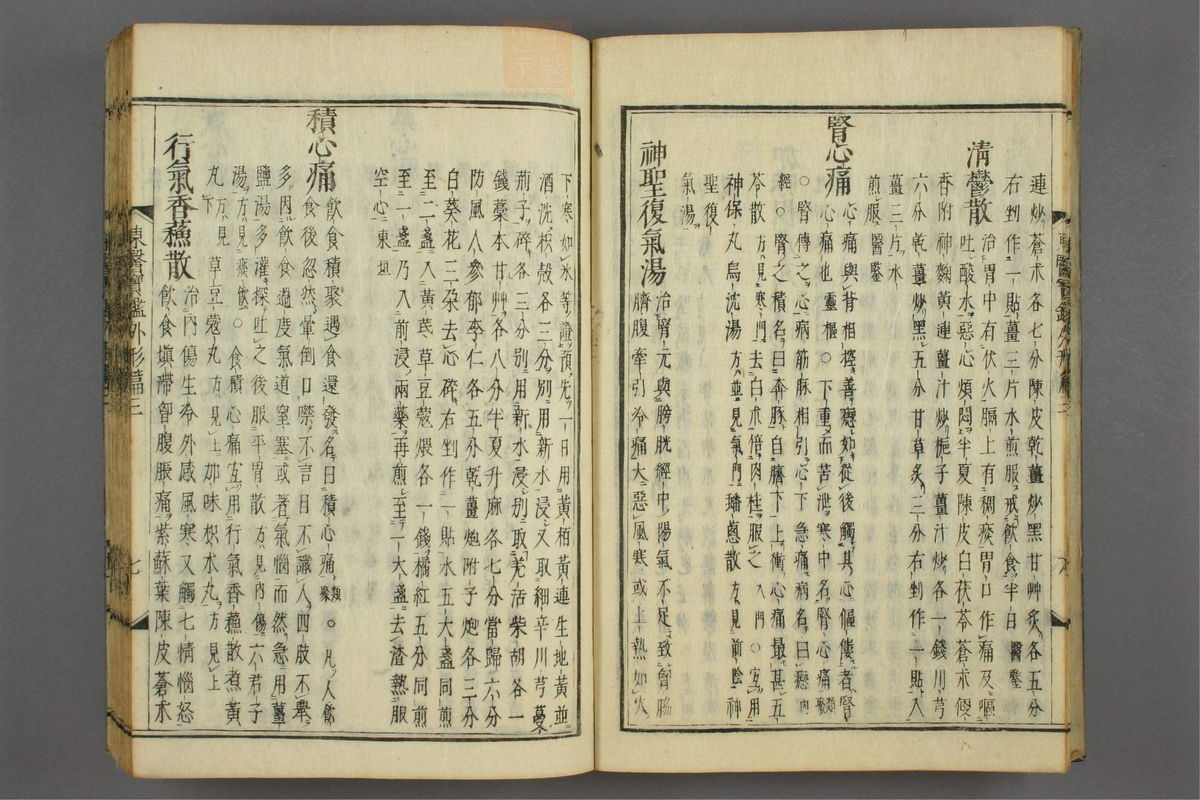 連炒蒼朮各七分陳皮乾薑炒黑甘艸炙各五分
右剉作一貼薑三片水煎服戒飲食半日 醫鑒
清鬱散 治胃中有伏火膈上有稠痰胃口作痛及嘔
吐酸水惡心煩悶半夏陳皮白茯苓蒼朮便
香附神麴黃連薑汁炒梔子薑汁炒各一錢川芎
六分乾薑炒黑五分甘草炙三分右剉作一貼入
薑三片水
煎服 醫鑒
腎心痛 心痛與背相控善瘛如從後觸其心傴僂者腎
心痛也 靈樞 ○下重而苦泄寒中名腎心痛 類聚
○腎傳之心病筋脉相引心下急痛病名曰瘛 內
經 ○腎之積名曰奔豚自臍下上衝心痛最甚五
苓散 方見寒門 去白朮倍肉桂服之 入門 ○宜用
神保丸烏沈湯 方並見氣門 蟠葱散 方見前陰 神
聖復
氣湯
神聖復氣湯 治腎元與膀胱經中陽氣不足致胷膈
臍腹牽引冷痛大惡風寒或上熱如火
下寒如氷等證預先一日用黃栢黃連生地黃並
酒洗枳殼各三分別用新水浸又取細辛川芎蔓
荊子碎各三分別用新水浸別取羌活柴胡各一
錢藁本甘艸各八分半夏升麻各七分當歸六分
防風人參郁李仁各五分乾薑炮附子炮各三分
白葵花三朶去心碎右剉作一貼水五大盞同煎
至二盞入黃芪草豆蔻煨各一錢橘紅五分同煎
至一盞乃入前浸兩藥再煎至一大盞去渣熱服
空心 東垣
積心痛 飲食積聚遇食還發名曰積心痛 類聚 ○凡人飲
食後忽然暈倒口噤不言目不識人四肢不擧
多因飲食過度氣道窒塞或著氣惱而然急用薑
鹽湯多灌探吐之後服平胃散 方見內傷 六君子
湯 方見痰飲 ○食積心痛宜用行氣香蘓散煮黃
丸 方見下 草豆蔻丸 方見上 加味枳朮丸 方見上
行氣香蘓散 治內傷生冷外感風寒又觸七情惱怒
飲食塡滯胷腹脹痛紫蘇葉陳皮蒼朮
東醫寶鑑外形篇三 七